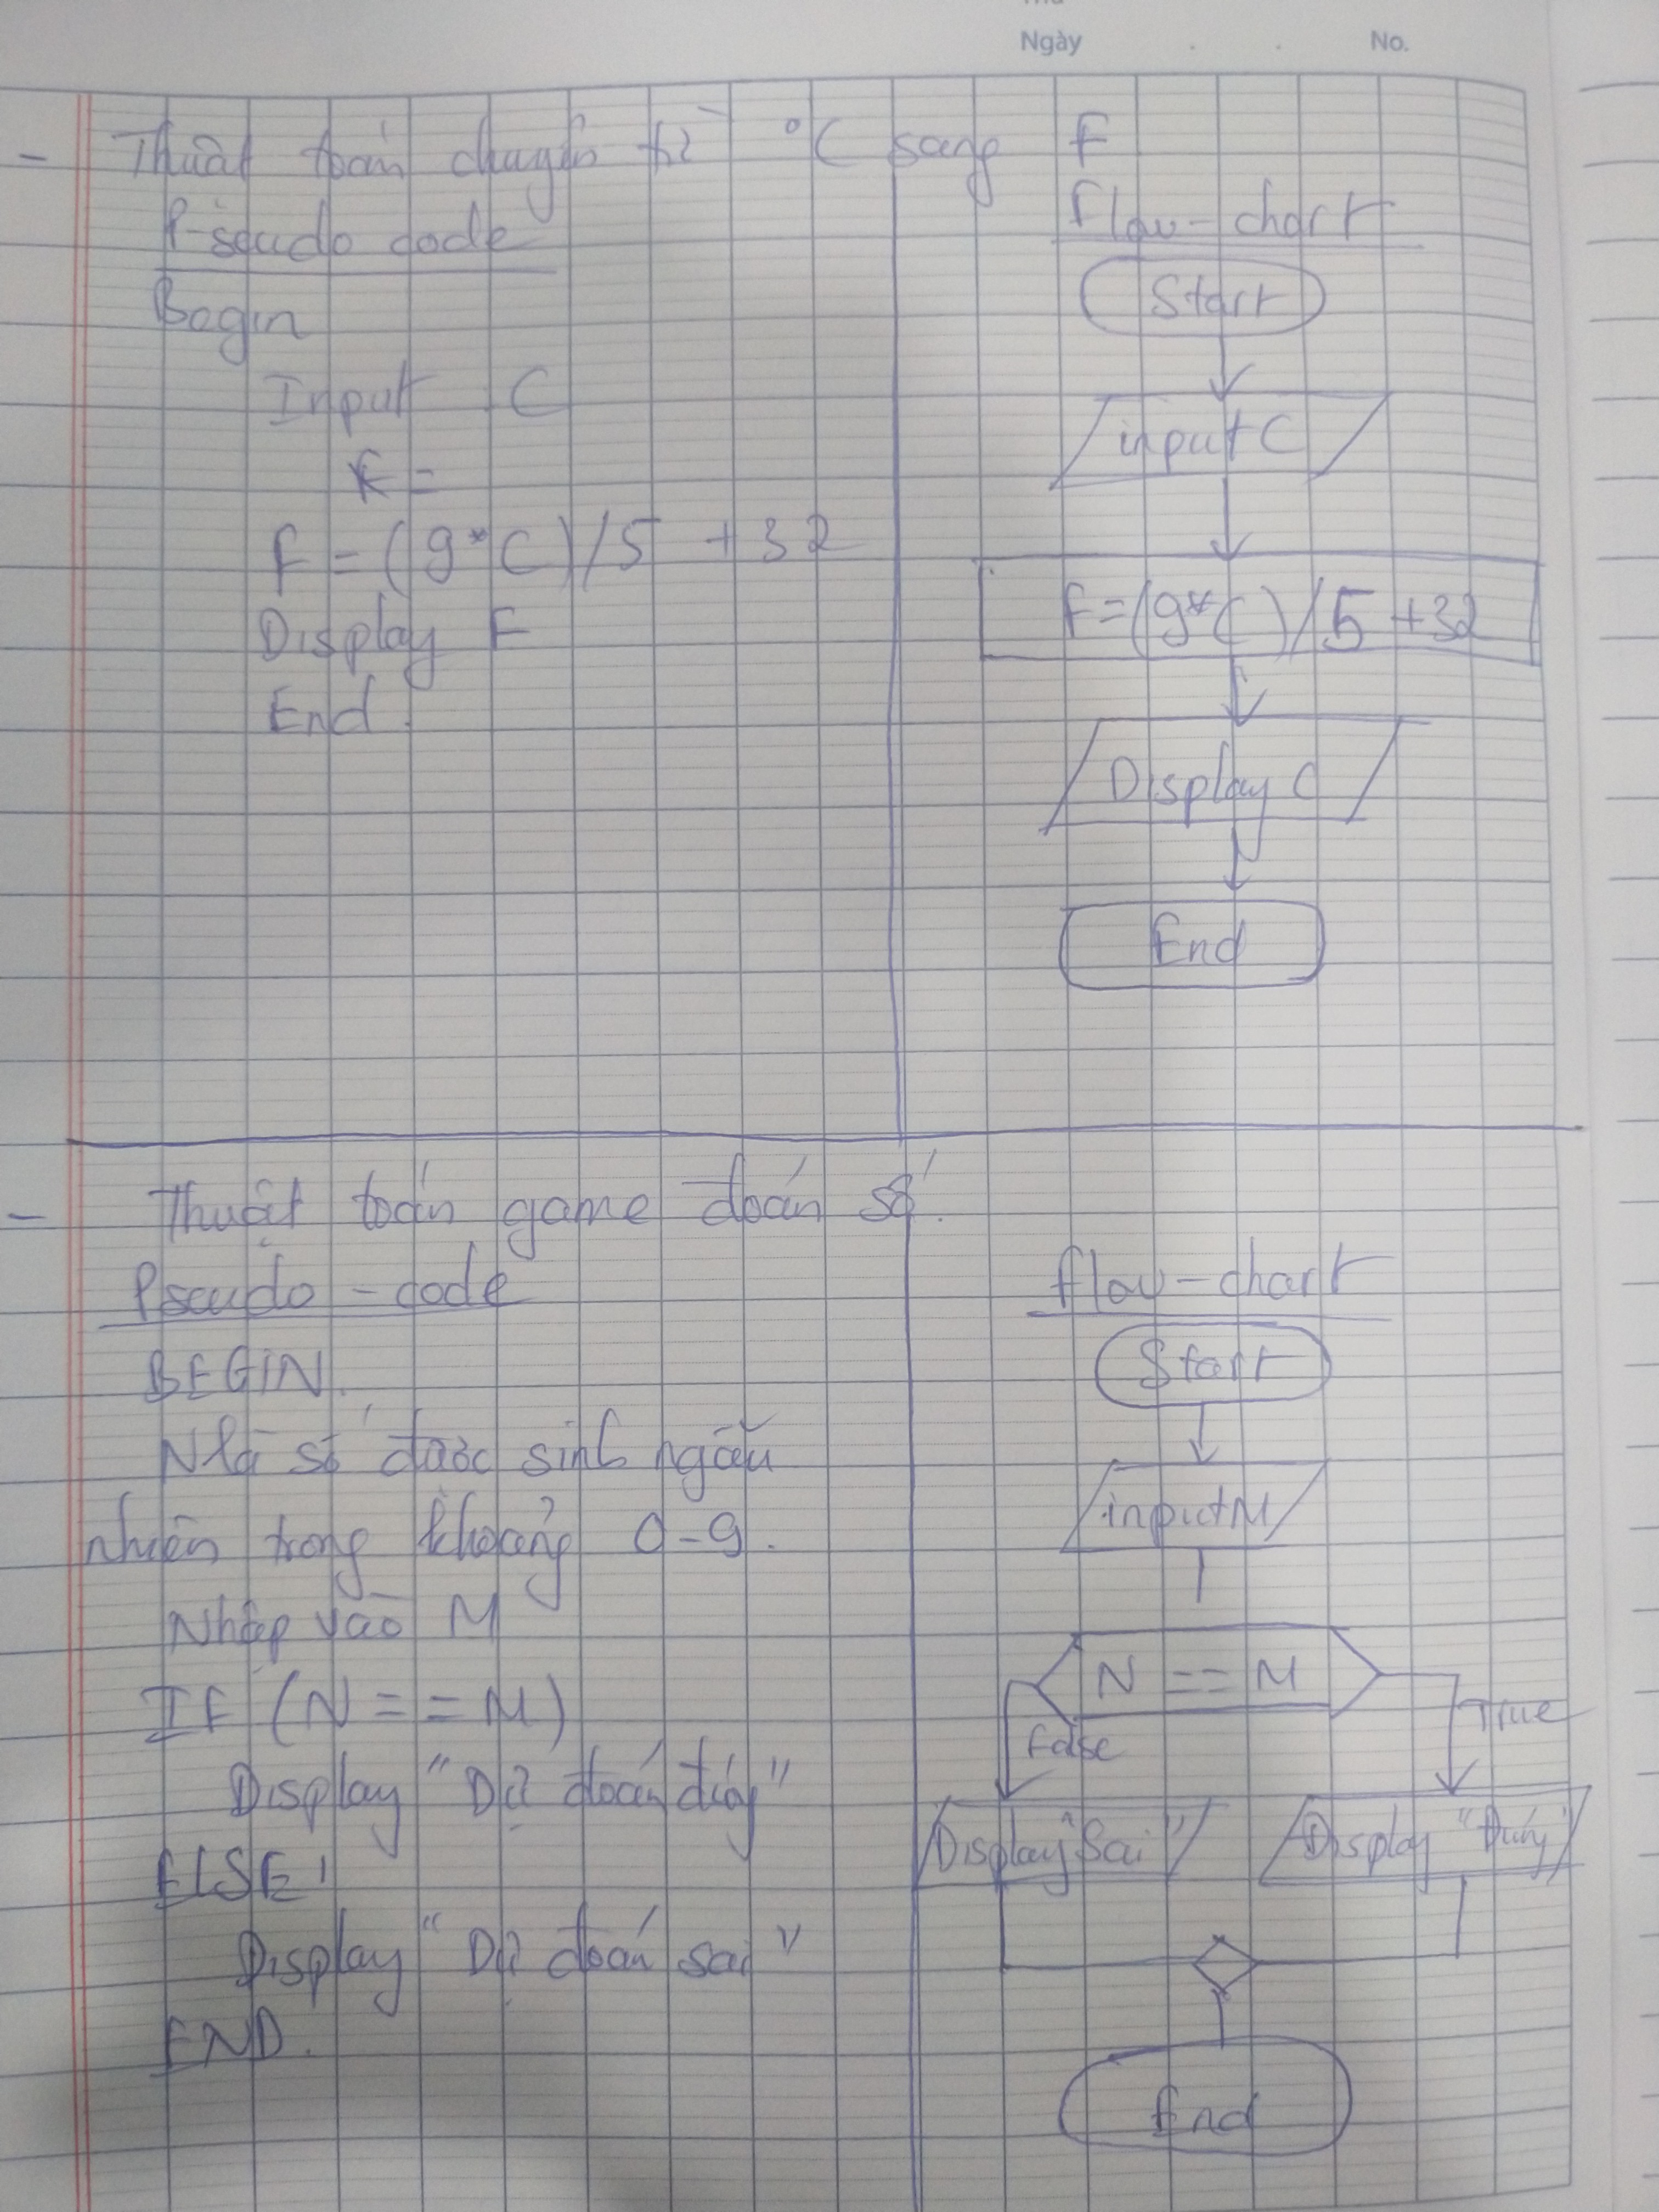 Ngày . . No.
- Thuật toán chuyển từ °C sang F
Pseudo code
Begin
Input C
F = (9*C)/5 +32
Display F
End.
Flow-chart
Start
input C
F=(9*C)/5+32
Display C
End
- Thuật toán game đoán số.
Pseudo-code
BEGIN.
N là số được sinh ngẫu
nhiên trong khoảng 0-9.
Nhập vào M
IF (N==M)
Display "Dự đoán đúng"
ELSE
Display "Dự đoán sai"
END.
flow-chart
Start
input M
N == M
False
True
Display "Sai"
Display "Đúng"
End